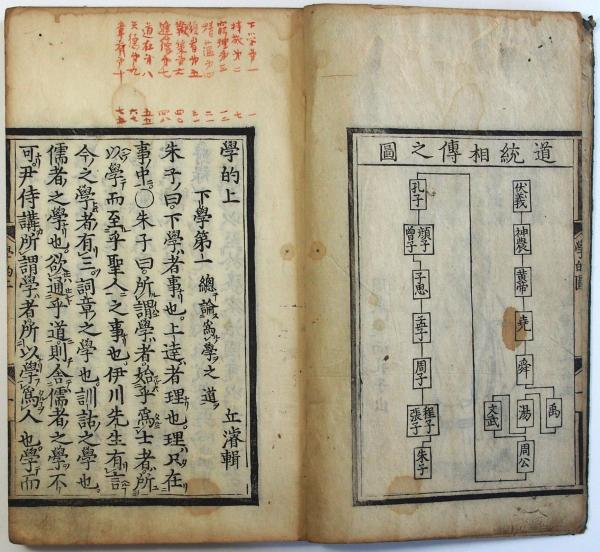 學的圖
道統相傳之圖
伏羲
神農
黄帝
堯
舜
禹
湯
文武
周公
孔子
顔子
曾子
子思
孟子
周子
程子
張子
朱子
下学第一 一
持敬第二 七
窮理第三 一二
鞭策第六 四〇
進徳第七 四八
道在第八 五五
天徳第九 六七
韋斎第十 七五
學的上
下學第一 總論爲學之道 丘濬輯
朱子曰下學者事也上達者理也理只在
事中○朱子曰所謂學者始乎爲士者所
以學而至乎聖人之事也伊川先生有言
今之學者有三詞章之學也訓詁之學也
儒者之學也欲通乎道則舍儒者之學不
可尹侍講所謂學者所以學爲人也學而